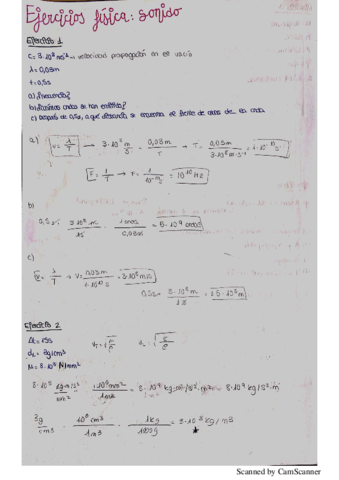 Ejercicios física: sonido
Ejercicio 1
c = 3·10⁸ m/s → velocidad propagación en el vacío
λ = 0,03m
t = 0,5s
a) ¿Frecuencia?
b) ¿Cuántas ondas se han emitido?
c) Después de 0,5s, a qué distancia se encuentra el frente de onda de la onda
a) v = λ/T → 3·10⁸ m/s = 0,03m/T → T = 0,03m / 3·10⁸ m·s⁻¹ = 1·10⁻¹⁰ s
F = 1/T → F = 1/10⁻¹⁰ s = 10¹⁰ Hz
b)
0,5 s · 3·10⁸ m / 1s · 1 onda / 0,03m = 5·10⁹ ondas
c)
v = λ/T → v = 0,03m / 1·10⁻¹⁰ s = 3·10⁸ m/s
0,5s · 3·10⁸ m / 1s = 1.5·10⁸ m
Ejercicio 2
Δt = 15s
3g/cm³ · 10⁶ cm³/1m³ · 1kg/1000g = 3·10³ kg/m³
Scanned by CamScanner